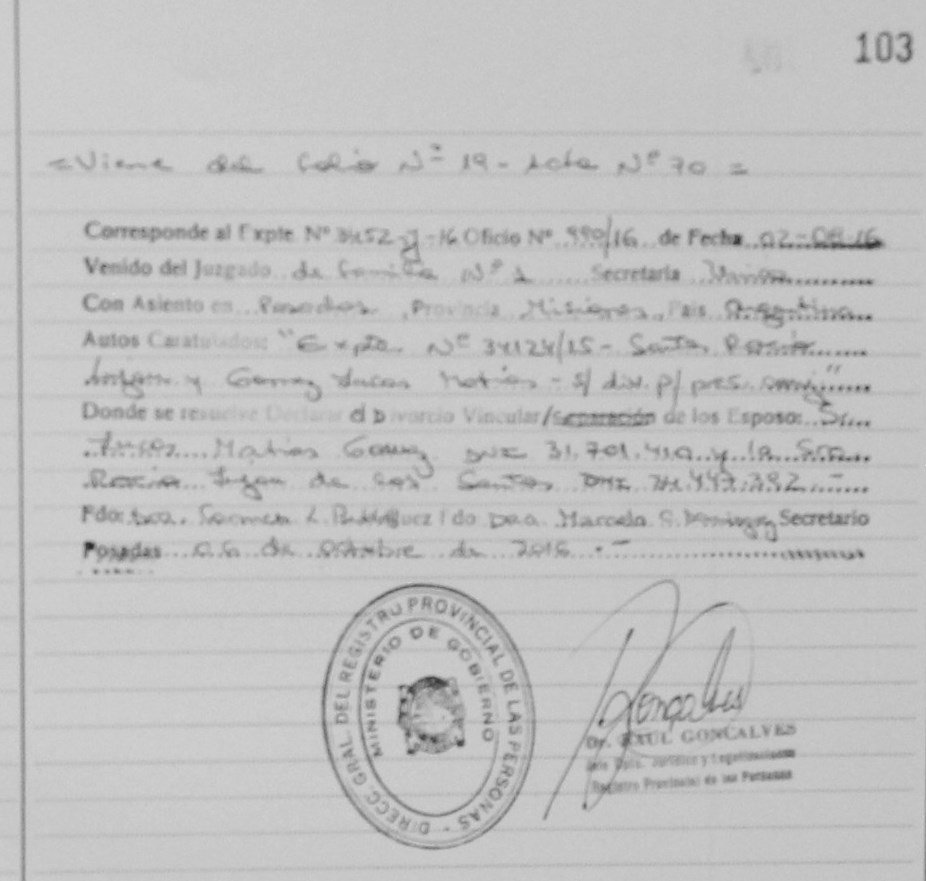 103
= Viene del Folio Nº 19 - Acta Nº 70 =
Corresponde al Expte. Nº 3452-J-16 Oficio Nº 990/16 de Fecha 02-08-16
Venido del Juzgado de Familia Nº 1 Secretaria Unica
Con Asiento en Posadas, Provincia Misiones, Pais Argentina
Autos Caratulados: "Expte. Nº 34124/15 - Santos
y Gomez Lucas Matias - s/ div. p/ pres. conj."
Donde se resuelve Declarar el Divorcio Vincular/Separación de los Esposos: Sr.
Lucas Matias Gomez DNI 31.701.410 y la Sra.
de los Santos DNI
Fdo: Dra. Carmen L. Fdo Dra. Marcela Secretario
Posadas de Octubre de 2016.-
DIRECC. GRAL. DEL REGISTRO PROVINCIAL DE LAS PERSONAS -
MINISTERIO DE GOBIERNO
Goncalves
Dr. RAUL GONCALVES
Jefe Dpto. Jurídico y Legalizaciones
Registro Provincial de las Personas